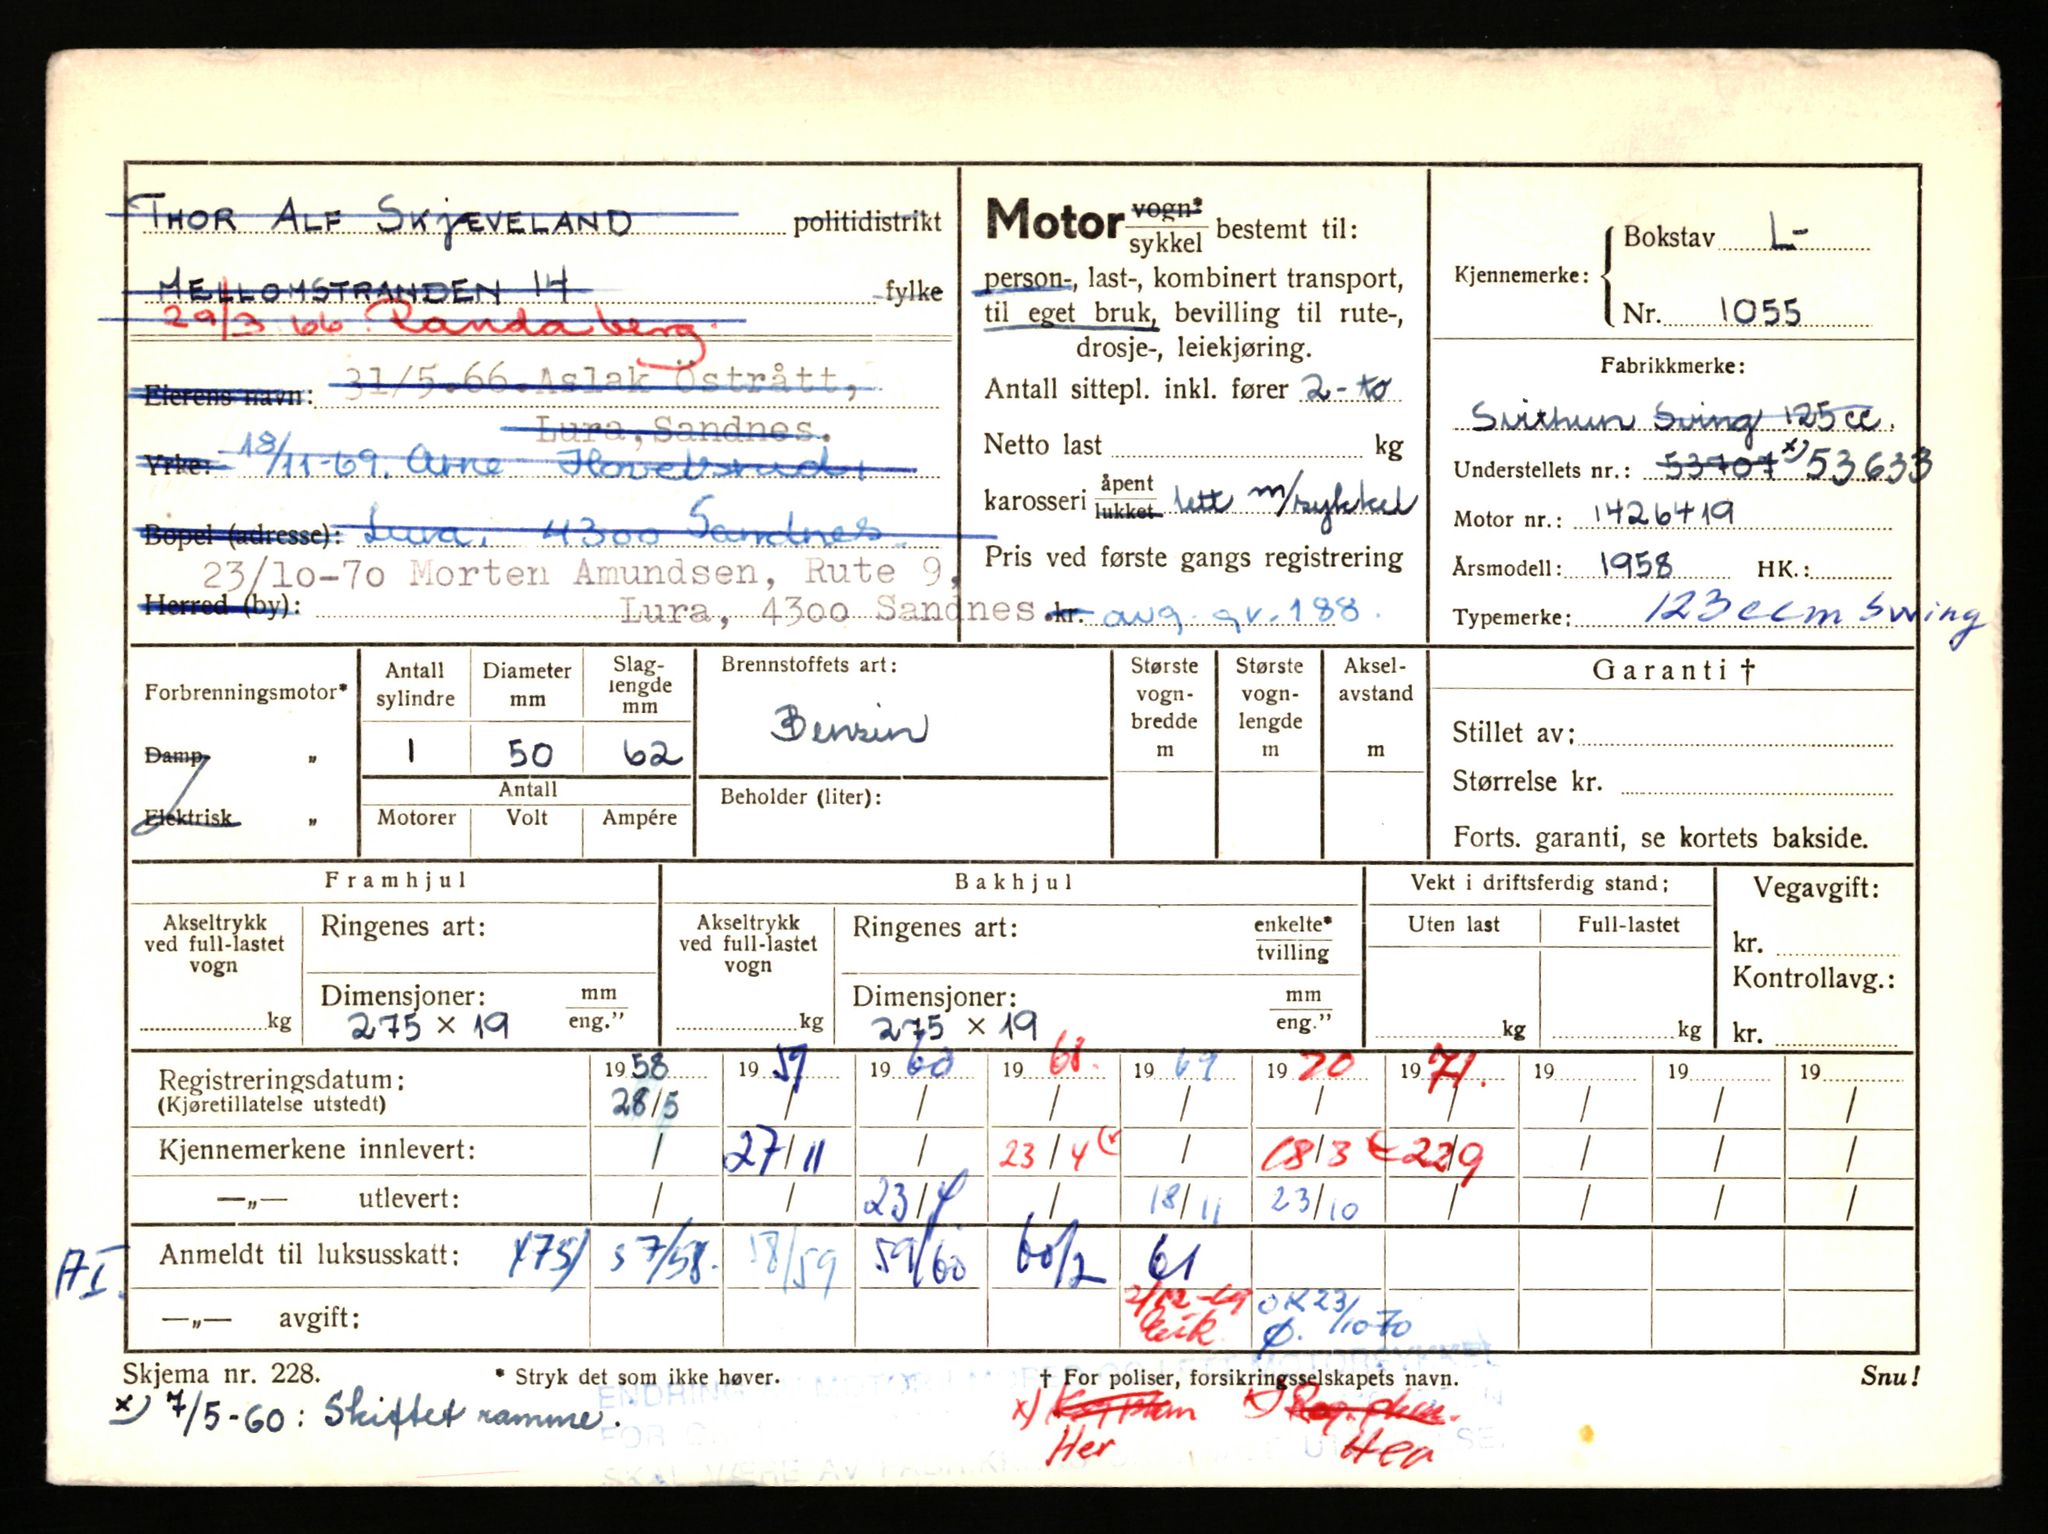 THOR ALF SKJÆVELAND politidistrikt
MELLOMSTRANDEN 14 fylke
29/3 66 Randaberg.
Eierens navn: 31/5.66. Aslak Östrått,
Lura, Sandnes.
Yrke: 18/11-69. Arne
Bopel (adresse): Lura, 4300 Sandnes.
23/10-70 Morten Amundsen, Rute 9,
Herred (by): Lura, 4300 Sandnes.
Motor vogn*
sykkel bestemt til:
person-, last-, kombinert transport,
til eget bruk, bevilling til rute-,
drosje-, leiekjøring.
Antall sittepl. inkl. fører 2-to
Netto last kg
karosseri åpent
lukket lett m/sykkel
Pris ved første gangs registrering
kr. avg. gr. 188.
Kjennemerke: Bokstav L-
Nr. 1055
Fabrikkmerke:
Svithun Sving 125 cc.
Understellets nr.: 53707 x) 53633
Motor nr.: 1426419
Årsmodell: 1958 HK.:
Typemerke: 123 ccm Sving
Forbrenningsmotor*
Damp „
Elektrisk „
Antall sylindre Diameter mm Slag-lengde mm
1 50 62
Antall
Motorer Volt Ampére
Brennstoffets art:
Bensin
Beholder (liter):
Største vogn-bredde m
Største vogn-lengde m
Aksel-avstand m
Garanti †
Stillet av:
Størrelse kr.
Forts. garanti, se kortets bakside.
Framhjul
Akseltrykk ved full-lastet vogn
kg
Ringenes art:
Dimensjoner: mm
eng."
275 × 19
Bakhjul
Akseltrykk ved full-lastet vogn
kg
Ringenes art: enkelte*
tvilling
Dimensjoner: mm
eng."
275 × 19
Vekt i driftsferdig stand:
Uten last Full-lastet
kg kg
Vegavgift:
kr.
Kontrollavg.:
kr.
Registreringsdatum: 1958 1959 1960 1968. 1969 1970 1971. 19 19 19
(Kjøretillatelse utstedt) 28/5 / / / / / / / / /
Kjennemerkene innlevert: / 27/11 / 23/4 / 18/3 22/9 / / /
—„— utlevert: / / 23/4 / 18/11 23/10 / / / /
AI.
Anmeldt til luksusskatt: x75/ 57/58. 58/59 59/60 60/2 61
—„— avgift: OK 23/10-70
Skjema nr. 228. * Stryk det som ikke høver. † For poliser, forsikringsselskapets navn. Snu!
x) 7/5-60: Skiftet ramme.
x) Her
x) Her